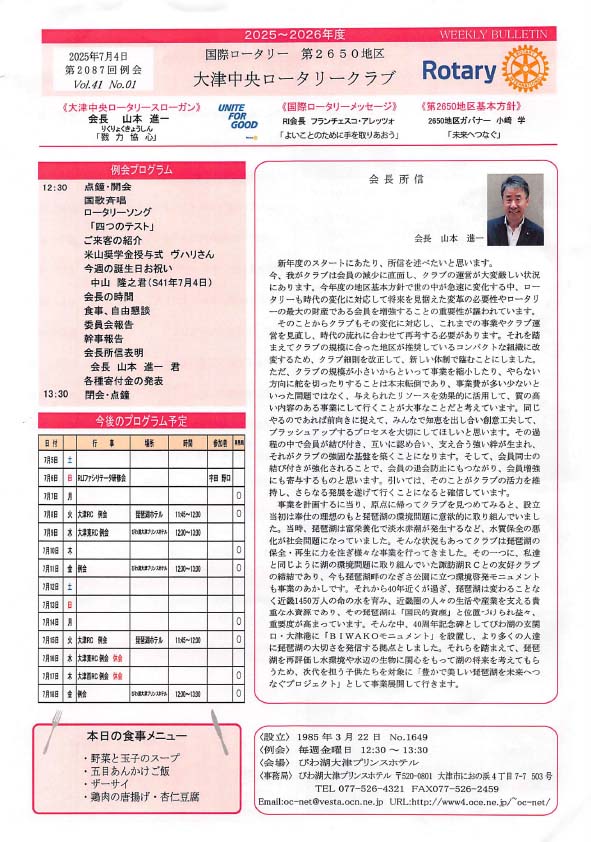 2025～2026年度 WEEKLY BULLETIN
2025年7月4日
第2087回例会
Vol.41 No.01
国際ロータリー 第2650地区
大津中央ロータリークラブ
Rotary
《大津中央ロータリースローガン》
会長 山本 進一
りくりょくきょうしん
「戮力協心」
UNITE
FOR
GOOD
《国際ロータリーメッセージ》
RI会長 フランチェスコ・アレッツォ
「よいことのために手を取りあおう」
《第2650地区基本方針》
2650地区ガバナー 小﨑 学
「未来へつなぐ」
例会プログラム
12:30 点鐘・開会
国歌斉唱
ロータリーソング
「四つのテスト」
ご来客の紹介
米山奨学金授与式 ヴハリさん
今週の誕生日お祝い
中山 隆之君(S41年7月4日)
会長の時間
食事、自由懇談
委員会報告
幹事報告
会長所信表明
会長 山本 進一 君
各種寄付金の発表
13:30 閉会・点鐘
今後のプログラム予定
日 付 行 事 場所 時間 参加者
7月5日 土
7月6日 日 RLIファシリテータ研修会 宇田 野口
7月7日 月 ○
7月8日 火 大津RC 例会 琵琶湖ホテル 11:45～12:30 ○
7月9日 水 大津東RC 例会 びわ湖大津プリンスホテル 12:30～13:30 ○
7月10日 木 ○
7月11日 金 例会 びわ湖大津プリンスホテル 12:30～13:30 ○
7月12日 土
7月13日 日
7月14日 月 ○
7月15日 火 大津RC 例会 琵琶湖ホテル 11:45～12:30 ○
7月16日 水 大津東RC 例会 休会 ○
7月17日 木 大津西RC 例会 休会 ○
7月18日 金 例会 びわ湖大津プリンスホテル 12:30～13:30 ○
本日の食事メニュー
・野菜と玉子のスープ
・五目あんかけご飯
・ザーサイ
・鶏肉の唐揚げ・杏仁豆腐
会 長 所 信
会長 山本 進一
新年度のスタートにあたり、所信を述べたいと思います。
今、我がクラブは会員の減少に直面し、クラブの運営が大変厳しい状況
にあります。今年度の地区基本方針で世の中が急速に変化する中、ロー
タリーも時代の変化に対応して将来を見据えた変革の必要性やロータリ
ーの最大の財産である会員を増強することの重要性が謳われています。
そのことからクラブもその変化に対応し、これまでの事業やクラブ運
営を見直し、時代の流れに合わせて再考する必要があります。それを踏
まえてクラブの規模に合った地区が推奨しているコンパクトな組織に改
変するため、クラブ細則を改正して、新しい体制で臨むことにしました。
ただ、クラブの規模が小さいからといって事業を縮小したり、やらない
方向に舵を切ったりすることは本末転倒であり、事業費が多い少ないと
いった問題ではなく、与えられたリソースを効果的に活用して、質の高
い内容のある事業にして行くことが大事なことだと考えています。同じ
やるのであれば前向きに捉えて、みんなで知恵を出し合い創意工夫して、
ブラッシュアップするプロセスを大切にしてほしいと思います。その過
程の中で会員が結び付き、互いに認め合い、支え合う強い絆が生まれ、
それがクラブの強固な基盤を築くことになります。そして、会員同士の
結び付きが強化されることで、会員の退会防止にもつながり、会員増強
にも寄与するものと思います。引いては、そのことがクラブの活力を維
持し、さらなる発展を遂げて行くことになると確信しています。
事業を計画するに当り、原点に帰ってクラブを見つめてみると、設立
当初は奉仕の理想のもと琵琶湖の環境問題に意欲的に取り組んでいまし
た。当時、琵琶湖は富栄養化で淡水赤潮が発生するなど、水質保全の悪
化が社会問題になっていました。そんな状況もあってクラブは琵琶湖の
保全・再生に力を注ぎ様々な事業を行ってきました。その一つに、私達
と同じように湖の環境問題に取り組んでいた諏訪湖RCとの友好クラブ
の締結であり、今も琵琶湖畔のなぎさ公園に立つ環境啓発モニュメント
も事業のあかしです。それから40年近くが過ぎ、琵琶湖は変わることな
く近畿1450万人の命の水を育み、近畿圏の人々の生活や産業を支える貴
重な水資源であり、その琵琶湖は「国民的資産」と位置づけられ益々、
重要度が高まっています。そんな中、40周年記念碑としてびわ湖の玄関
口・大津港に「BIWAKOモニュメント」を設置し、より多くの人達
に琵琶湖の大切さを発信する拠点としました。それらを踏まえて、琵琶
湖を再評価し水環境や水辺の生物に関心をもって湖の将来を考えてもら
うため、次代を担う子供たちを対象に「豊かで美しい琵琶湖を未来へつ
なぐプロジェクト」として事業展開して行きます。
〈設立〉 1985年3月22日 No.1649
〈例会〉 毎週金曜日 12:30～13:30
〈会場〉 びわ湖大津プリンスホテル
〈事務局〉 びわ湖大津プリンスホテル 〒520-0801 大津市におの浜4丁目7-7 503号
TEL 077-526-4321 FAX077-526-2459
Email:oc-net@vesta.ocn.ne.jp URL:http://www4.oce.ne.jp/~oc-net/